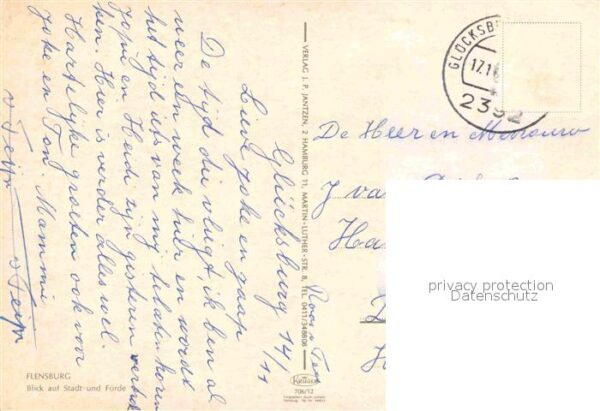 Glücksburg 14/11
Lieve Joke en Jaap
De tijd die vliegt, ik ben al
weer een week hier en wordt
het tijd iets van mij te laten horen
Jopie en Heidi zijn gisteren vertrok
ken. Hier is verder alles wel.
Hartelijke groeten ook voor
Joke en Ton. Mammie
FLENSBURG
Blick auf Stadt und Förde
VERLAG J. P. JANTZEN, 2 HAMBURG 11, MARTIN-LUTHER-STR. 8, TEL. 0411/348808
Krüger
706/12
GLÜCKSB
17.1
2392
De Heer en Mevrouw
J van
privacy protection
Datenschutz